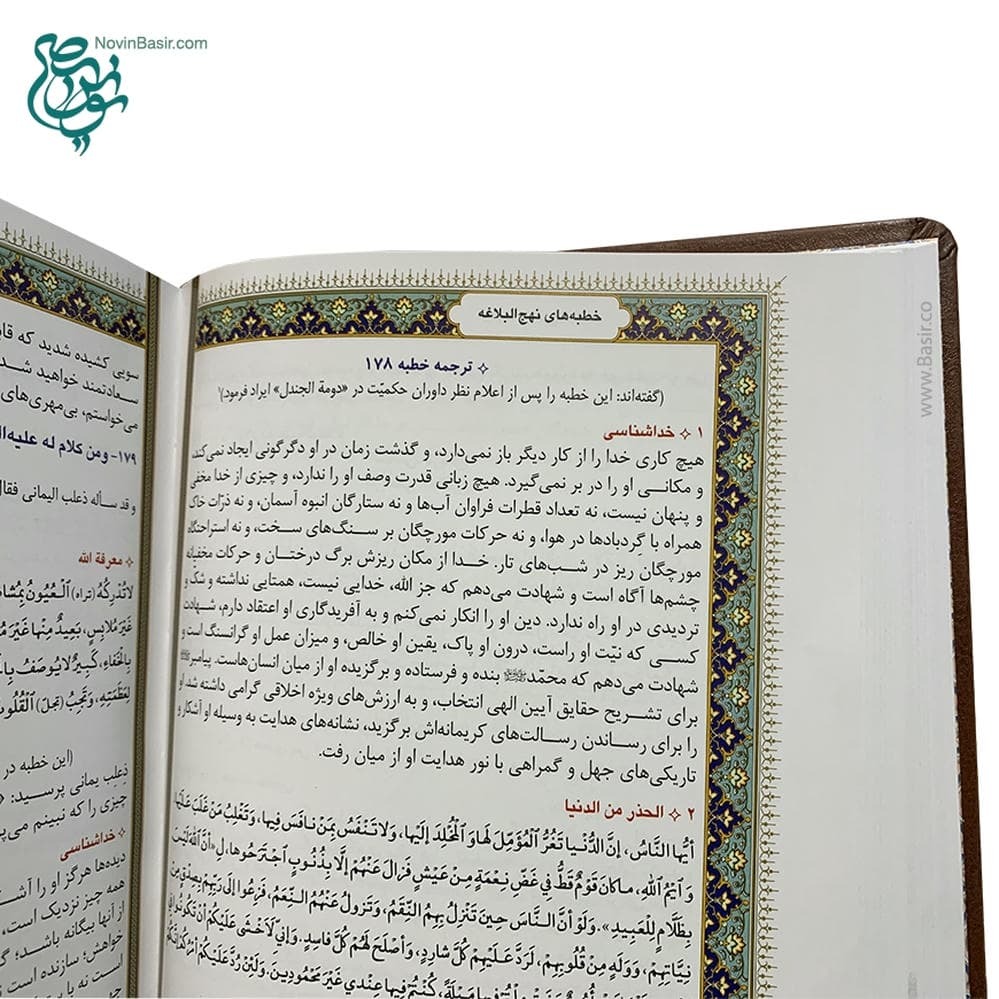 NovinBasir.com
www.Basir.co
خطبه‌های نهج‌البلاغه
✧ ترجمه خطبه ۱۷۸
(گفته‌اند: این خطبه را پس از اعلام نظر داوران حکمیّت در «دومة الجندل» ایراد فرمود)
۱ ✧ خداشناسی
هیچ کاری خدا را از کار دیگر باز نمی‌دارد، و گذشت زمان در او دگرگونی ایجاد نمی‌کند،
و مکانـی او را در بر نمی‌گیرد. هیچ زبانی قدرت وصف او را ندارد، و چیزی از خدا مخفی
و پنهان نیست، نه تعداد قطرات فراوان آب‌ها و نه ستارگان انبوه آسمان، و نه ذرّات خاک
همراه با گِردبادها در هوا، و نه حرکات مورچگان بر سـنگ‌های سـخت، و نه استراحتگاه
مورچگان ریز در شب‌های تار. خدا از مکان ریزش برگ درختـان و حرکات مخفیانه
چشم‌ها آگاه است و شهادت می‌دهم که جز الله، خدایی نیست، همتایی نداشته و شک و
تردیدی در او راه ندارد. دین او را انکار نمی‌کنم و به آفریدگاری او اعتقاد دارم، شـهادت
کسی که نیّت او راست، درون او پاک، یقین او خالص، و میزان عمل او گرانسنگ است و
شهادت می‌دهم که محمّدﷺ بنده و فرستاده و برگزیده او از میان انسان‌هاست. پیامبرﷺ
برای تشـریح حقایق آیین الهی انتخاب، و به ارزش‌های ویژه اخلاقی گرامی داشته شد. او
را برای رسـاندن رسـالت‌های کریمانه‌اش برگزید، نشانه‌های هدایت به وسیله او آشکار و
تاریکی‌های جهل و گمراهی با نور هدایت او از میان رفت.
۲ ✧ الحذر من الدنیا
أَیُّهَا النَّاسُ، إِنَّ الدُّنْیَا تَغُرُّ الْمُؤَمِّلَ لَهَا وَ الْمُخْلِدَ إِلَیْهَا، وَلَا تَنْفَسُ بِمَنْ نَافَسَ فِیهَا، وَتَغْلِبُ مَنْ غَلَبَ عَلَیْهَا
وَ ایْمُ اللهِ، مَا کَانَ قَوْمٌ قَطُّ فِی غَضِّ نِعْمَةٍ مِنْ عَیْشٍ فَزَالَ عَنْهُمْ إِلَّا بِذُنُوبٍ اجْتَرَحُوهَا، لِـ«أَنَّ اللهَ لَیْسَ
بِظَلَّامٍ لِلْعَبِیدِ». وَلَوْ أَنَّ النَّاسَ حِینَ تَنْزِلُ بِهِمُ النِّقَمُ، وَتَزُولُ عَنْهُمُ النِّعَمُ، فَزِعُوا إِلَی رَبِّهِمْ بِصِدْقٍ مِنْ
نِیَّاتِهِمْ، وَوَلَهٍ مِنْ قُلُوبِهِمْ، لَرَدَّ عَلَیْهِمْ کُلَّ شَارِدٍ، وَأَصْلَحَ لَهُمْ کُلَّ فَاسِدٍ. وَإِنِّی لَأَخْشَی عَلَیْکُمْ أَنْ تَکُونُوا فِی
مَیْلَةً، کُنْتُمْ فِیهَا عِنْدِی غَیْرَ مَحْمُودِینَ، وَلَئِنْ رُدَّ عَلَیْکُمْ
سویی کشیده شدید که
سعادتمند خواهید شد
می‌خواستم، بی‌مهری‌های
۱۷۹- و من کلام له علیه
و قد سـأله ذعلب الیمانی فقال
✧ معرفة الله
لَا تُدْرِکُهُ (تراه) الْعُیُونُ
غَیْرَ مُلَابِسٍ، بَعِیدٌ مِنْهَا غَیْرَ
بِالْخَفَاءِ، کَبِیرٌ لَا یُوصَفُ
لِعَظَمَتِهِ، وَ تَجِبُ (تجل) الْقُلُوبُ
(این خطبه در
ذعلب یمانی پرسید:
چیزی را که نبینم
✧ خداشناسی
دیده‌ها هرگز او را
همه چیز نزدیک است،
از آنها بیگانه باشد؛
خواهش؛ سازنده است
است نه با